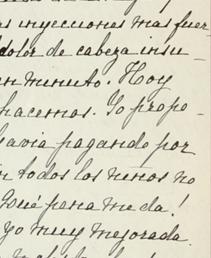 as inyecciones mas fuer-
dolor de cabeza insu-
un minuto. Hoy
hacemos. Yo propo-
davia pagando por
n todos los niños no
Qué pena me da!
Yo muy mejorada